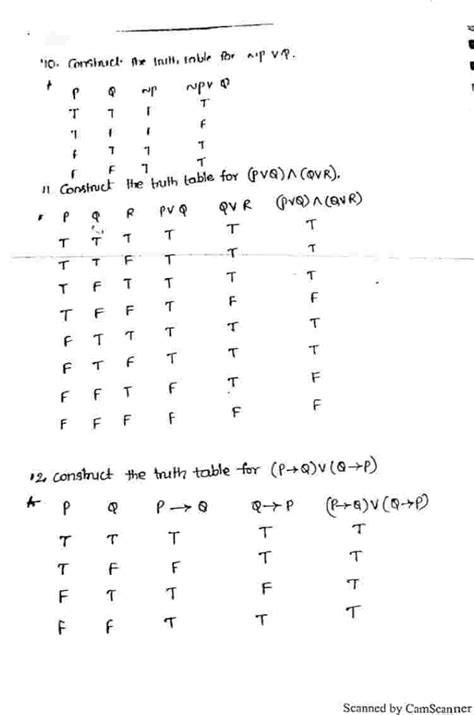 10. Construct the truth table for ~P ∨ Q.
P Q ~P ~P ∨ Q
T T F T
T F F F
F T T T
F F T T
11. Construct the truth table for (P∨Q)∧(Q∨R).
P Q R P∨Q Q∨R (P∨Q)∧(Q∨R)
T T T T T T
T T F T T T
T F T T T T
T F F T F F
F T T T T T
F T F T T T
F F T F T F
F F F F F F
12. Construct the truth table for (P→Q)∨(Q→P)
A P Q P→Q Q→P (P→Q)∨(Q→P)
T T T T T
T F F T T
F T T F T
F F T T T
Scanned by CamScanner